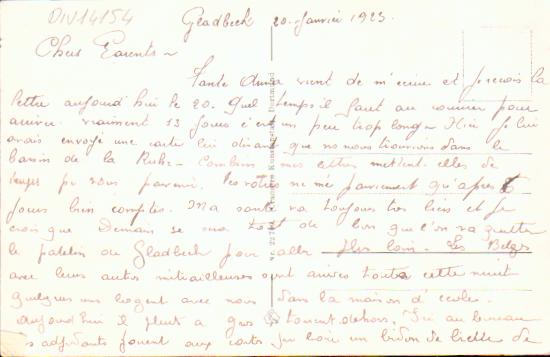 DIV14154
Gladbeck 20 Janvier 1923.
Chers Parents ~
Tante Anna vient de m'écrire et je reçois la
lettre aujourd'hui le 20. Quel temps il faut au courrier pour
arriver vraiment 13 jours c'est un peu trop long ~ Hier je lui
avais envoyé une carte lui disant que nous nous trouvions dans le
bassin de la Ruhr ~ Combien mes lettres mettent elles de
temps pr vous parvenir. Les votres ne me parviennent qu'après 6
jours bien comptés. Ma santé va toujours très bien et je
crois que Demain se sera tout de bon que l'on va quitter
le patelin de Gladbeck pour aller plus loin. Les Belges
avec leurs autos mitrailleuses sont arrivés toute cette nuit
quelques uns logent avec nous dans la maison d'école.
aujourd'hui il pleut a gros dehors. Ici au bureau
adjudants jouent aux cartes un bidon de de
Dortmund